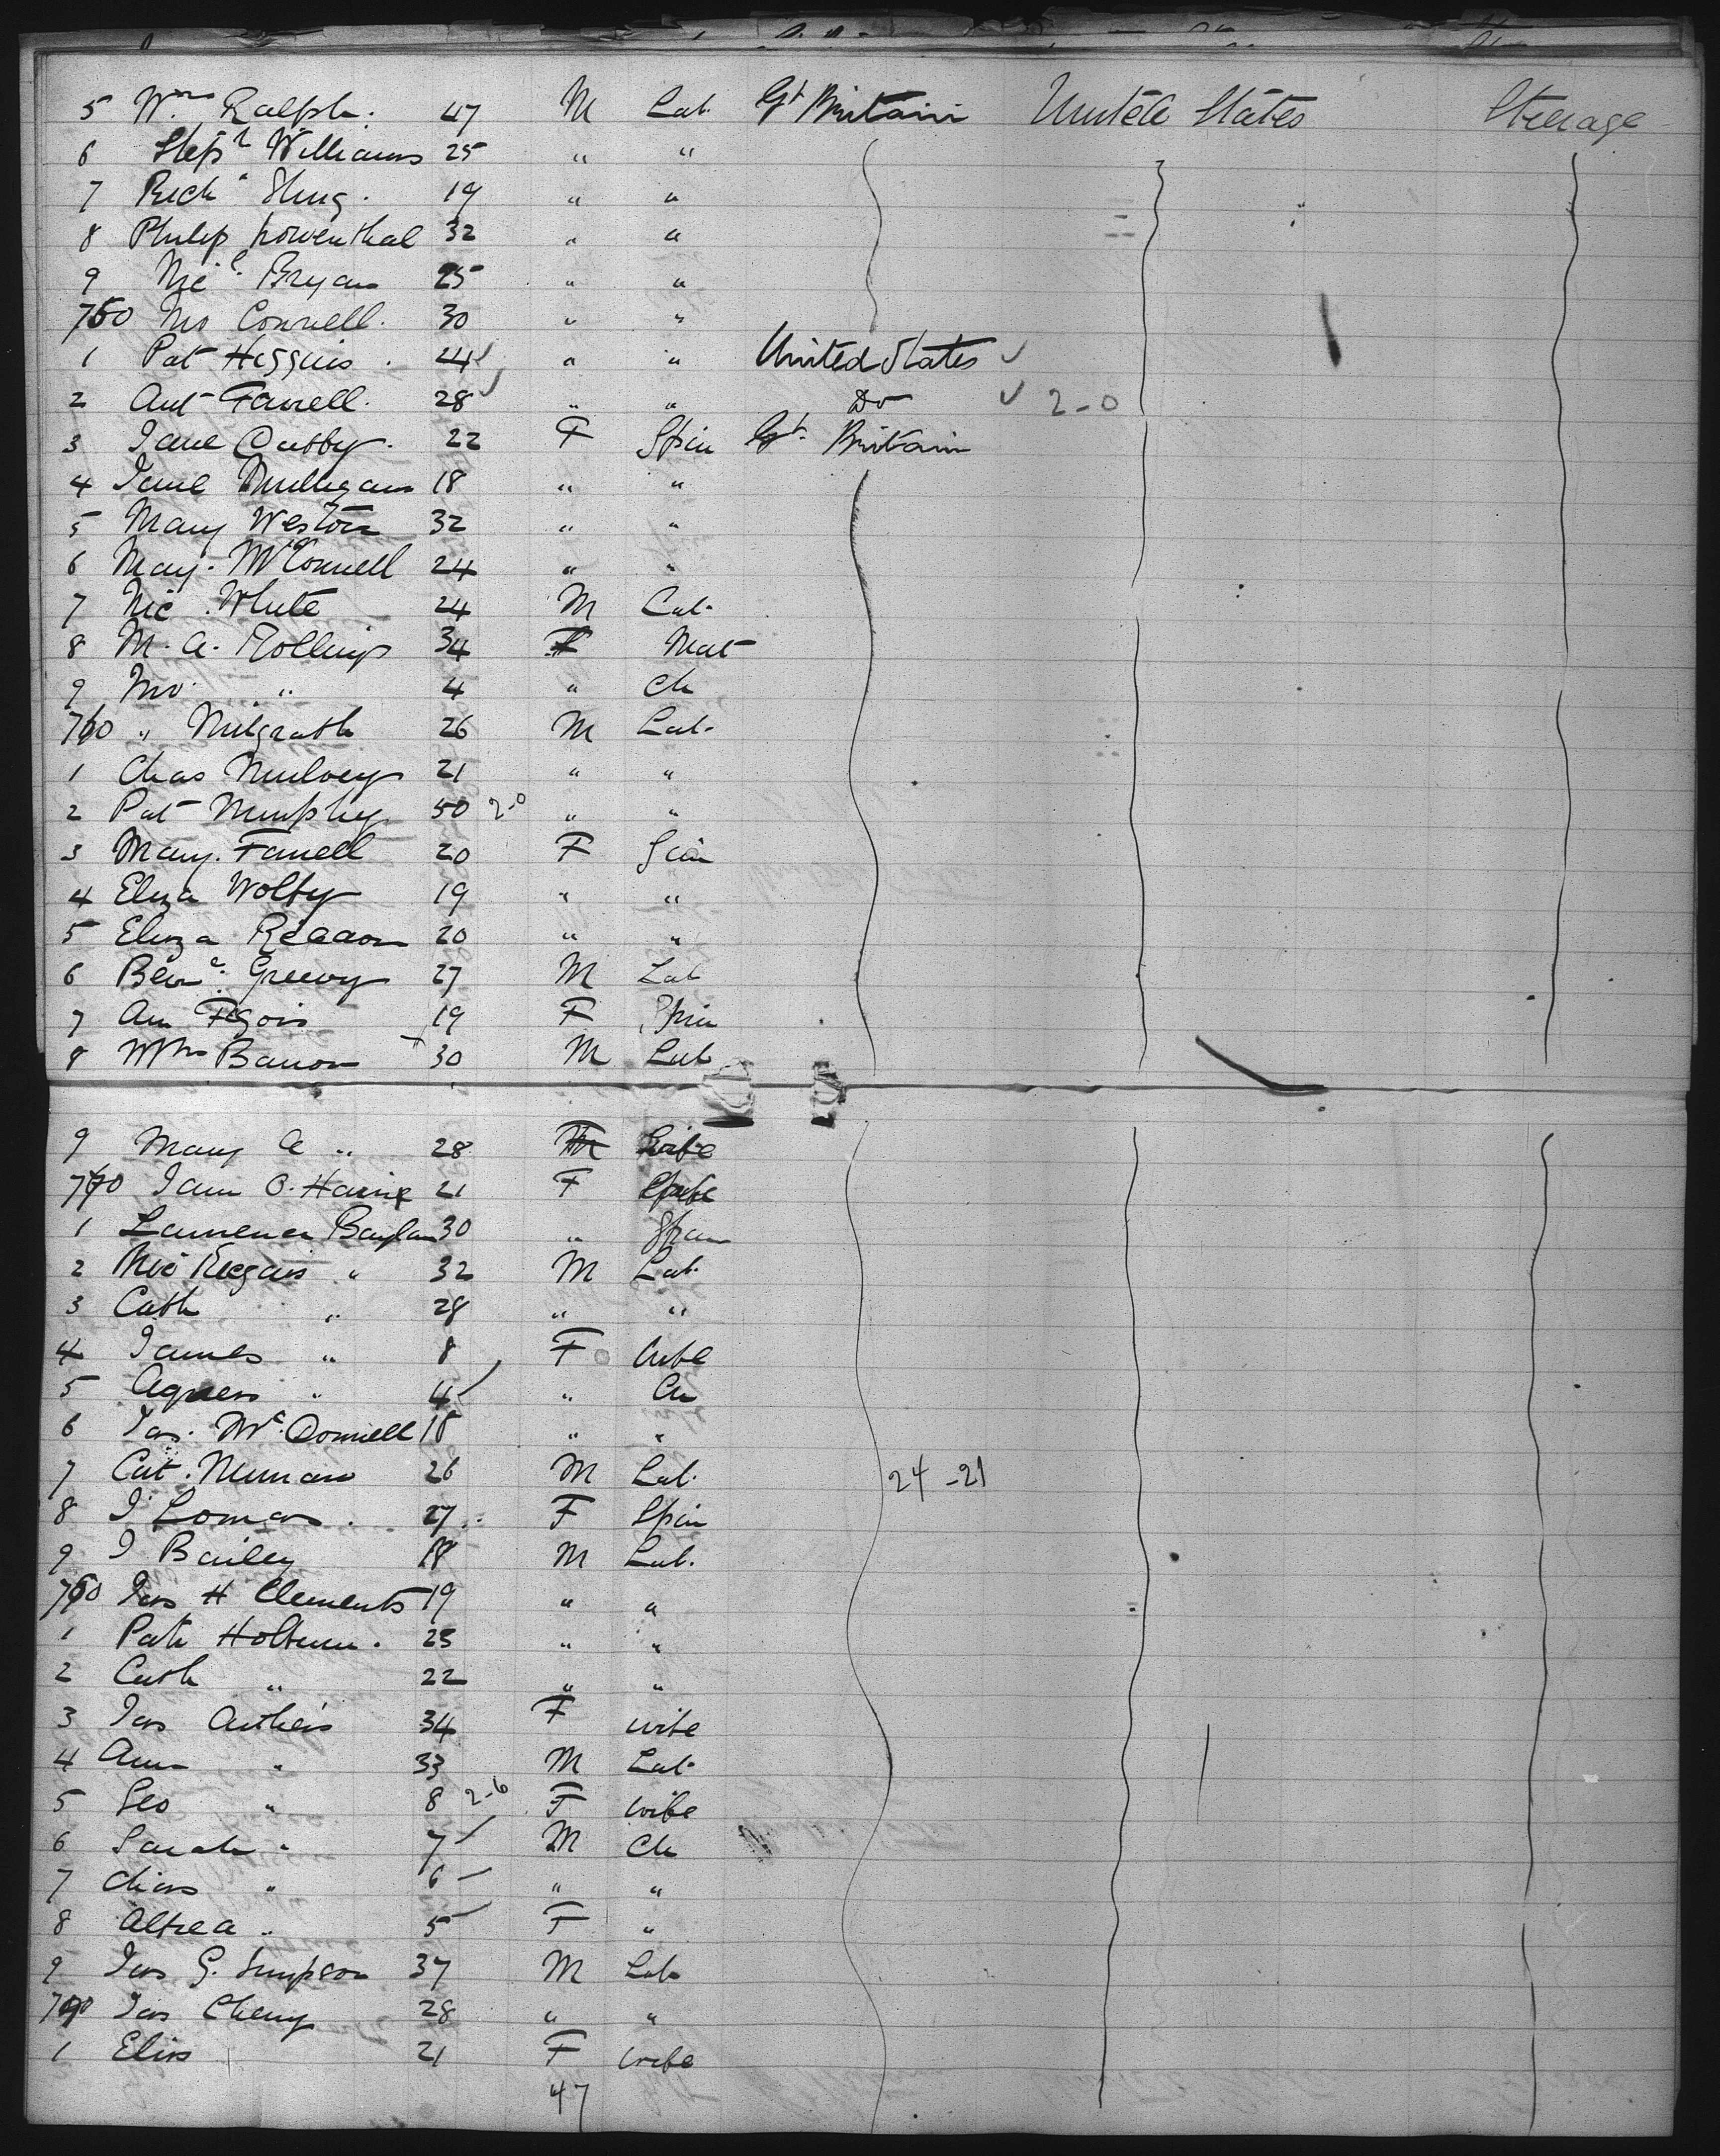 5 Wm Ralph. 47 M Lab. Gt Britain United States Steerage
6 Steph Williams 25 " "
7 Rich 19 " "
8 Philip Lowenthal 32 " "
9 Mic Bryan 25 " "
750 Connell. 30 " "
1 Pat Higgins . 24 ✓ " " United States ✓
2 Ant Farrell. 28 ✓ " " Do ✓ 2-0
3 Jane Cusby. 22 F Spin Gt. Britain
4 Jane Mulligan 18 " "
5 Mary Weston 32 " "
6 Mary. McConnell 24 " "
7 Mic. White 24 M Lab.
8 M. A. Rollings 34 F Mat
9 " 4 " Ch
760 " Milgrath 26 M Lab.
1 Chas Mulvey 21 " "
2 Pat Murphy 50 2-0 " "
3 Mary. Farrell 20 F Spin
4 Eliza Wolfy 19 " "
5 Eliza Readon 20 " "
6 Greevy 27 M Lab
7 Ann 19 F Spin
8 Wm Barron 30 M Lab
9 Mary A " 28 wife
770 O. 21 F
1 Laurence Boylan 30 "
2 Mic " 32 M Lab.
3 Cath " 28 " "
4 James " 8 F wife
5 Agness " 4 ✓ " Ch
6 Jas. McDonnell 18 " "
7 Cat. 26 M Lab. 24-21
8 J Lomas . 27 F Spin
9 J Bailey 18 M Lab.
780 Jas H Clements 19 " "
1 Patk . 23 " "
2 Cath " 22 " "
3 Jas 34 F wife
4 Ann " 33 M Lab.
5 Geo " 8 2-6 F wife
6 Sarah " 7 ✓ M Ch
7 Chas " 6 " "
8 " 5 F "
9 Jas G. Simpson 37 M Lab
790 Jas Cherry 28 " "
1 Elis 21 F wife
47